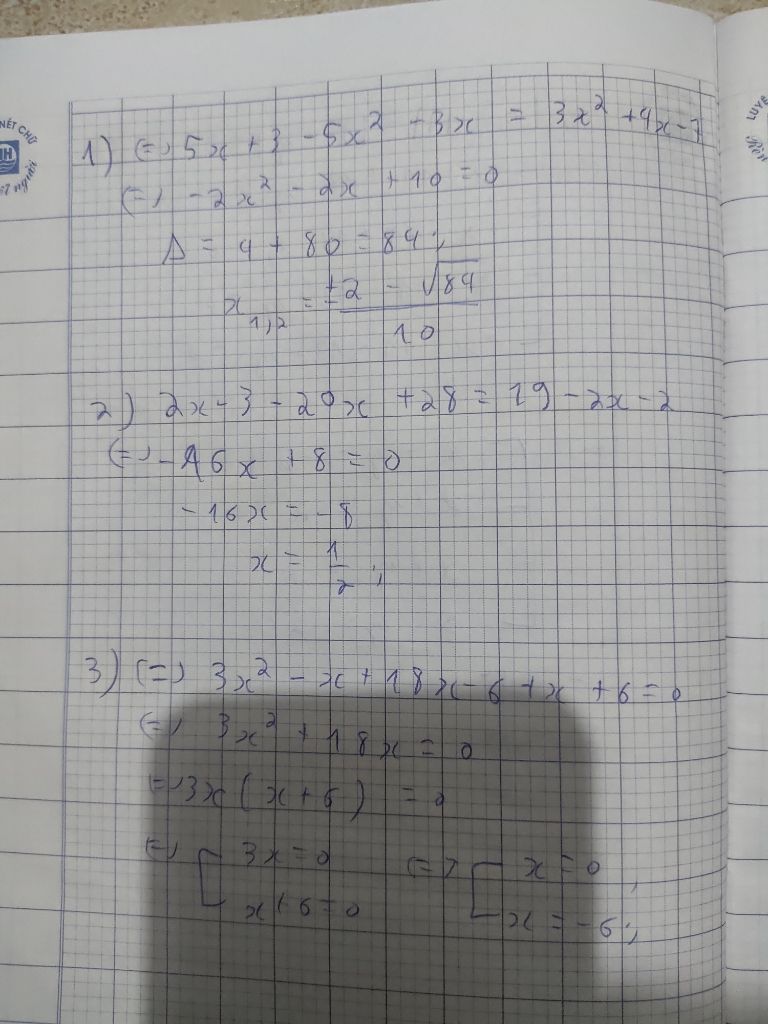 NÉT CHỮ
LUYỆ
1) (=) 5x + 3 - 5x² - 3x = 3x² + 4x - 7
(=) -2x² - 2x + 10 = 0
Δ = 4 + 80 = 84;
x₁,₂ = ±2 - √84 / 10
2) 2x - 3 - 20x + 28 = 19 - 2x - 2
(=) -16x + 8 = 0
-16x = -8
x = 1/2;
3) (=) 3x² - x + 18x - 6 + x + 6 = 0
(=) 3x² + 18x = 0
(=) 3x(x + 6) = 0
(=) [ 3x = 0 (=) [ x = 0,
x + 6 = 0 x = -6;